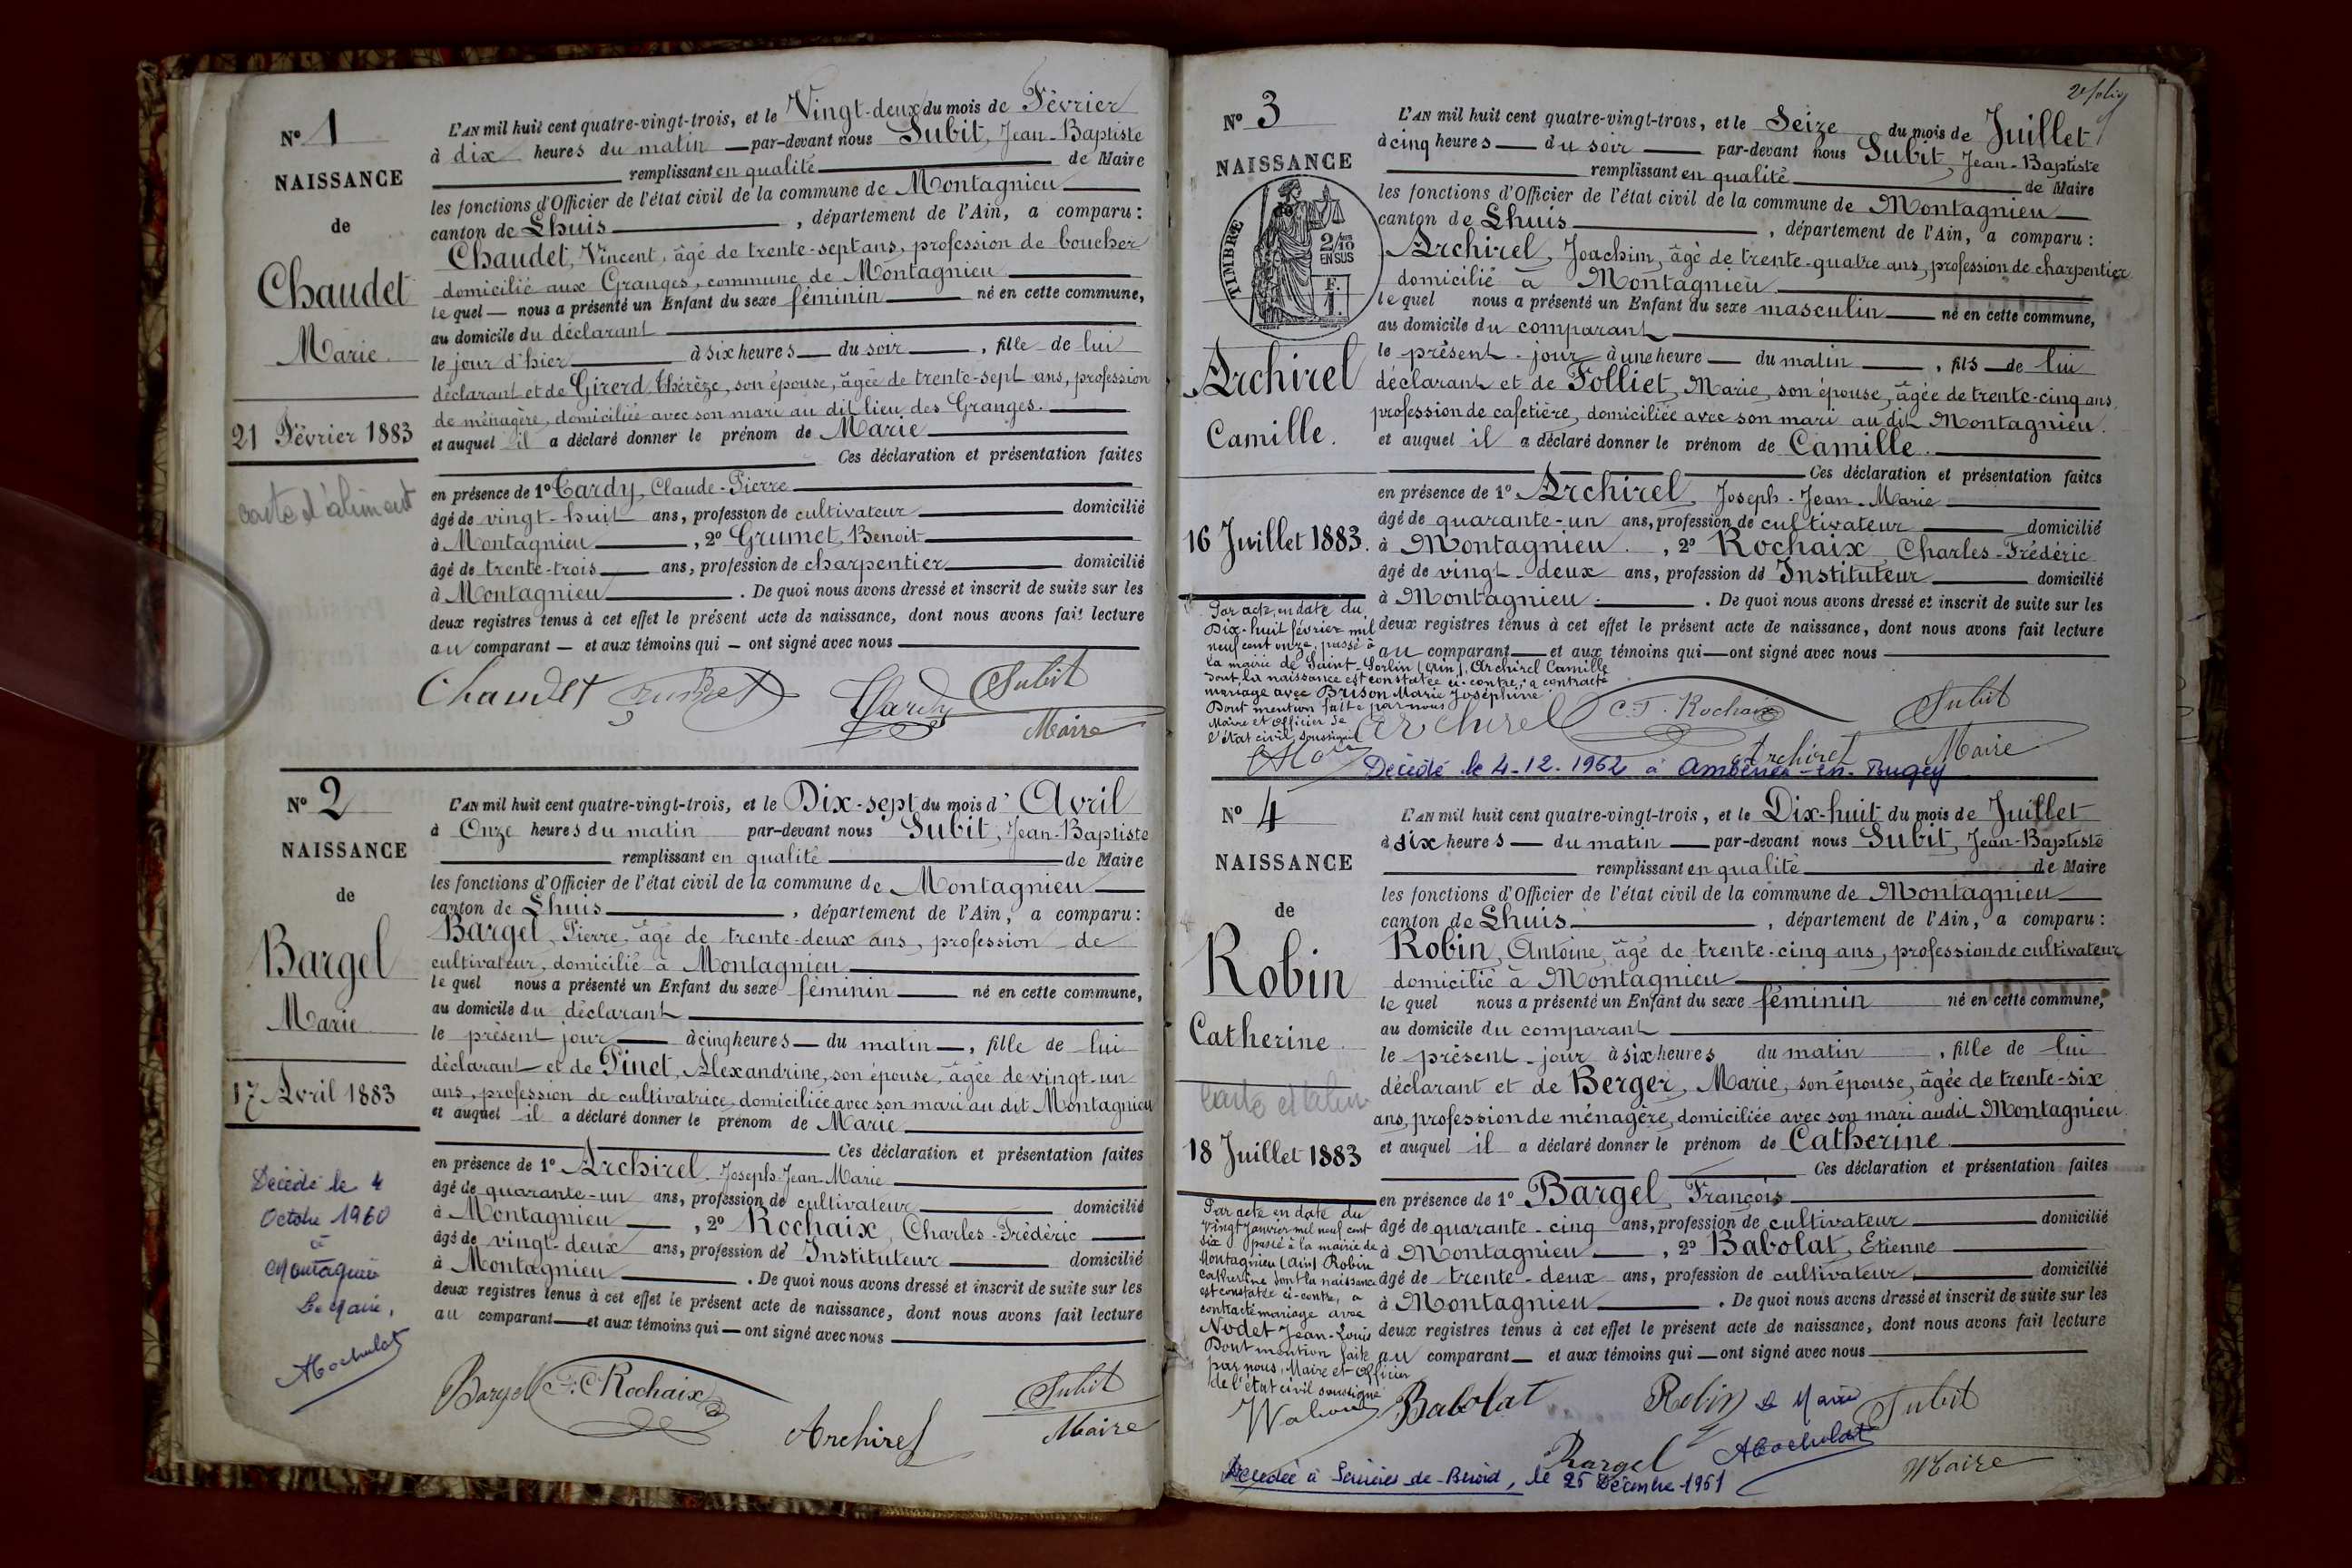 N° 1
NAISSANCE
de
Chaudet
Marie
21 Février 1883
carte d'aliment
L'AN mil huit cent quatre-vingt-trois, et le Vingt-deux du mois de Février
à dix heures du matin par-devant nous Subit, Jean-Baptiste
remplissant en qualité de Maire
les fonctions d'Officier de l'état civil de la commune de Montagnieu
canton de Lhuis, département de l'Ain, a comparu:
Chaudet, Vincent, âgé de trente-sept ans, profession de boucher
domicilié aux Granges, commune de Montagnieu
le quel — nous a présenté un Enfant du sexe féminin né en cette commune,
au domicile du déclarant
le jour d'hier à six heures du soir, fille de lui
déclarant et de Girerd, Thérèze, son épouse, âgée de trente-sept ans, profession
de ménagère, domiciliée avec son mari au dit lieu des Granges.
et auquel il a déclaré donner le prénom de Marie
Ces déclaration et présentation faites
en présence de 1° Tardy, Claude-Pierre
âgé de vingt-huit ans, profession de cultivateur domicilié
à Montagnieu, 2° Grumet, Benoit
âgé de trente-trois ans, profession de charpentier domicilié
à Montagnieu. De quoi nous avons dressé et inscrit de suite sur les
deux registres tenus à cet effet le présent acte de naissance, dont nous avons fait lecture
au comparant — et aux témoins qui — ont signé avec nous
Chaudet Grumet Tardy Subit
Maire
N° 2
NAISSANCE
de
Bargel
Marie
17 Avril 1883
Décédé le 4
Octobre 1960
à
Montagnieu
Le Maire,
L'AN mil huit cent quatre-vingt-trois, et le Dix-sept du mois d'Avril
à Onze heures du matin par-devant nous Subit, Jean-Baptiste
remplissant en qualité de Maire
les fonctions d'Officier de l'état civil de la commune de Montagnieu
canton de Lhuis, département de l'Ain, a comparu:
Bargel, Pierre, âgé de trente-deux ans, profession de
cultivateur, domicilié à Montagnieu
le quel nous a présenté un Enfant du sexe féminin né en cette commune,
au domicile du déclarant
le présent jour à cinq heures du matin, fille de lui
déclarant et de Pinet, Alexandrine, son épouse, âgée de vingt-un
ans, profession de cultivatrice, domiciliée avec son mari au dit Montagnieu
et auquel il a déclaré donner le prénom de Marie
Ces déclaration et présentation faites
en présence de 1° Archirel, Joseph-Jean-Marie
âgé de quarante-un ans, profession de cultivateur domicilié
à Montagnieu, 2° Rochaix, Charles-Frédéric
âgé de vingt-deux ans, profession de Instituteur domicilié
à Montagnieu. De quoi nous avons dressé et inscrit de suite sur les
deux registres tenus à cet effet le présent acte de naissance, dont nous avons fait lecture
au comparant — et aux témoins qui — ont signé avec nous
Bargel F.C Rochaix Archirel Subit
Maire
2e folio
N° 3
NAISSANCE
de
TIMBRE
2/10
EN SUS
F.
1.
Archirel
Camille.
16 Juillet 1883.
Par acte en date du
Dix-huit février mil
neuf cent onze, passé à
la mairie de Saint-Sorlin (Ain), Archirel Camille
dont la naissance est constatée ci-contre, a contracté
mariage avec Brison Marie Joséphine
Dont mention faite par nous
Maire et officier de
l'état civil, soussigné
L'AN mil huit cent quatre-vingt-trois, et le Seize du mois de Juillet
à cinq heures du soir par-devant nous Subit, Jean-Baptiste
remplissant en qualité de Maire
les fonctions d'Officier de l'état civil de la commune de Montagnieu
canton de Lhuis, département de l'Ain, a comparu:
Archirel, Joachim, âgé de trente-quatre ans, profession de charpentier
domicilié à Montagnieu
le quel nous a présenté un Enfant du sexe masculin né en cette commune,
au domicile du comparant
le présent jour à une heure du matin, fils de lui
déclarant et de Folliet, Marie, son épouse, âgée de trente-cinq ans,
profession de cafetière, domiciliée avec son mari au dit Montagnieu.
et auquel il a déclaré donner le prénom de Camille.
Ces déclaration et présentation faites
en présence de 1° Archirel, Joseph-Jean-Marie
âgé de quarante-un ans, profession de cultivateur domicilié
à Montagnieu, 2° Rochaix, Charles-Frédéric
âgé de vingt-deux ans, profession de Instituteur domicilié
à Montagnieu. De quoi nous avons dressé et inscrit de suite sur les
deux registres tenus à cet effet le présent acte de naissance, dont nous avons fait lecture
au comparant — et aux témoins qui — ont signé avec nous
Archirel C.F. Rochaix Subit
Archirel Maire
Décédé le 4-12-1962 à Ambérieu-en-Bugey
N° 4
NAISSANCE
de
Robin
Catherine
18 Juillet 1883
Par acte en date du
Vingt Janvier mil neuf cent
six passé à la mairie de
Montagnieu (Ain) Robin
Catherine dont la naissance
est constatée ci-contre, a
contracté mariage avec
Nodet Jean-Louis
Dont mention faite
par nous, Maire et officier
de l'état civil soussigné
L'AN mil huit cent quatre-vingt-trois, et le Dix-huit du mois de Juillet
à dix heures du matin par-devant nous Subit, Jean-Baptiste
remplissant en qualité de Maire
les fonctions d'Officier de l'état civil de la commune de Montagnieu
canton de Lhuis, département de l'Ain, a comparu:
Robin, Antoine, âgé de trente-cinq ans, profession de cultivateur
domicilié à Montagnieu
le quel nous a présenté un Enfant du sexe féminin né en cette commune,
au domicile du comparant
le présent jour à six heures du matin, fille de lui
déclarant et de Berger, Marie, son épouse, âgée de trente-six
ans, profession de ménagère, domiciliée avec son mari audit Montagnieu.
et auquel il a déclaré donner le prénom de Catherine
Ces déclaration et présentation faites
en présence de 1° Bargel, François
âgé de quarante-cinq ans, profession de cultivateur domicilié
à Montagnieu, 2° Babolat, Etienne
âgé de trente-deux ans, profession de cultivateur domicilié
à Montagnieu. De quoi nous avons dressé et inscrit de suite sur les
deux registres tenus à cet effet le présent acte de naissance, dont nous avons fait lecture
au comparant — et aux témoins qui — ont signé avec nous
Babolat Robin Le Maire Subit
Bargel Maire
Décédée à le 25 Décembre 1961